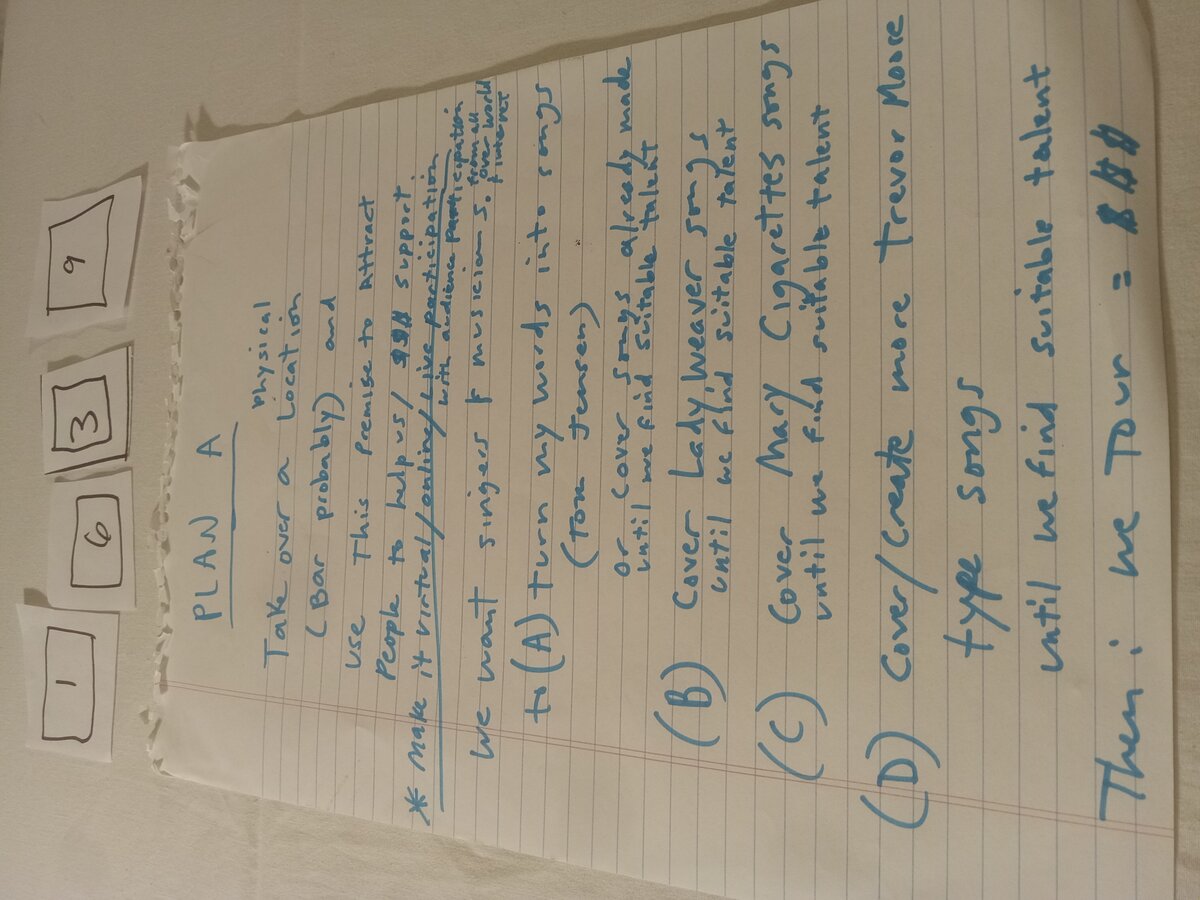 1
6
3
9
PLAN A
Take over a Physical Location
(Bar probably) and
use This Premise to Attract
People to help us / $$$ support
* Make it virtual/online/Live participation
with audience participation
from all
over world
internet
we want singers & musicians.
to (A) turn my words into songs
(Tom Jensen)
or cover songs already made
until we find suitable talent
(B) Cover LadyWeaver songs
until we find suitable talent
(C) Cover Mary Cigarettes songs
until we find suitable talent
(D) Cover/create more Trevor Moore
type songs
until we find suitable talent
Then: we Tour = $$$$